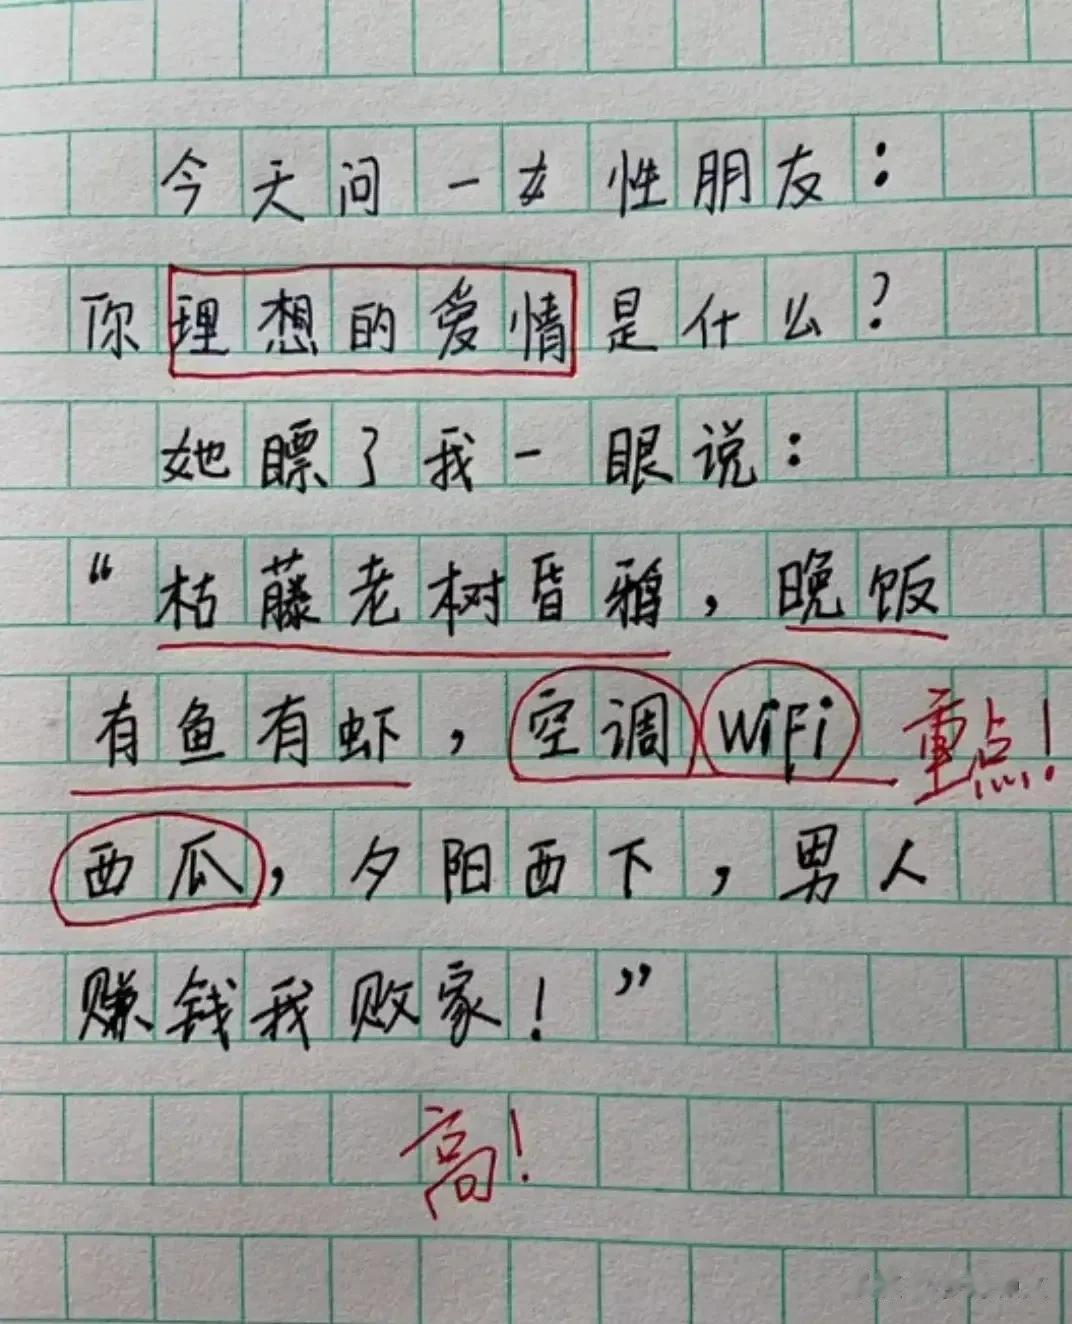 今天问一女性朋友：
你理想的爱情是什么？
她瞟了我一眼说：
“枯藤老树昏鸦，晚饭
有鱼有虾，空调WiFi 重点！
西瓜，夕阳西下，男人
赚钱我败家！”
高！